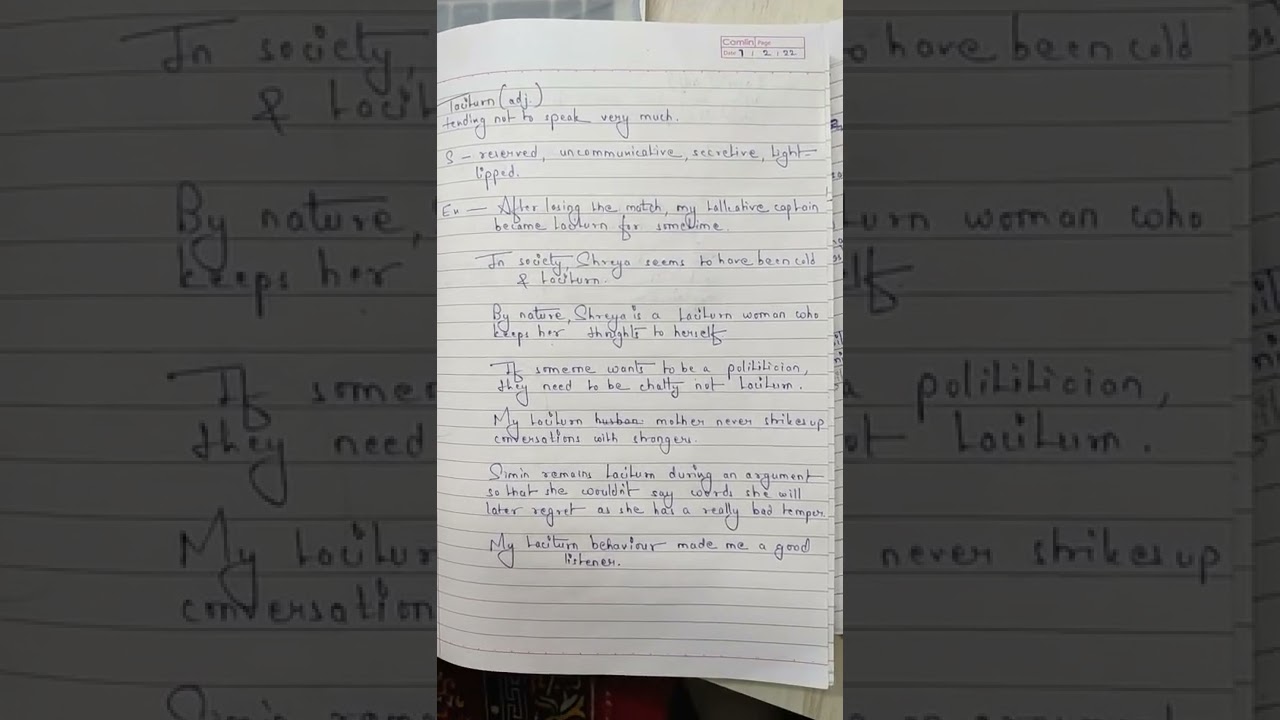 Camlin Page
Date 7 : 2 : 22
Taciturn (adj.)
tending not to speak very much.
S - reserved, uncommunicative, secretive, tight-
lipped.
Ex — After losing the match, my talkative captain
became taciturn for sometime.
In society, Shreya seems to have been cold
& taciturn.
By nature, Shreya is a taciturn woman who
keeps her thoughts to herself
If someone wants to be a polititician,
they need to be chatty not taciturn.
My taciturn husban mother never strikes up
conversations with strangers.
Simin remains taciturn during an argument
so that she wouldn't say words she will
later regret as she has a really bad temper.
My taciturn behaviour made me a good
listener.